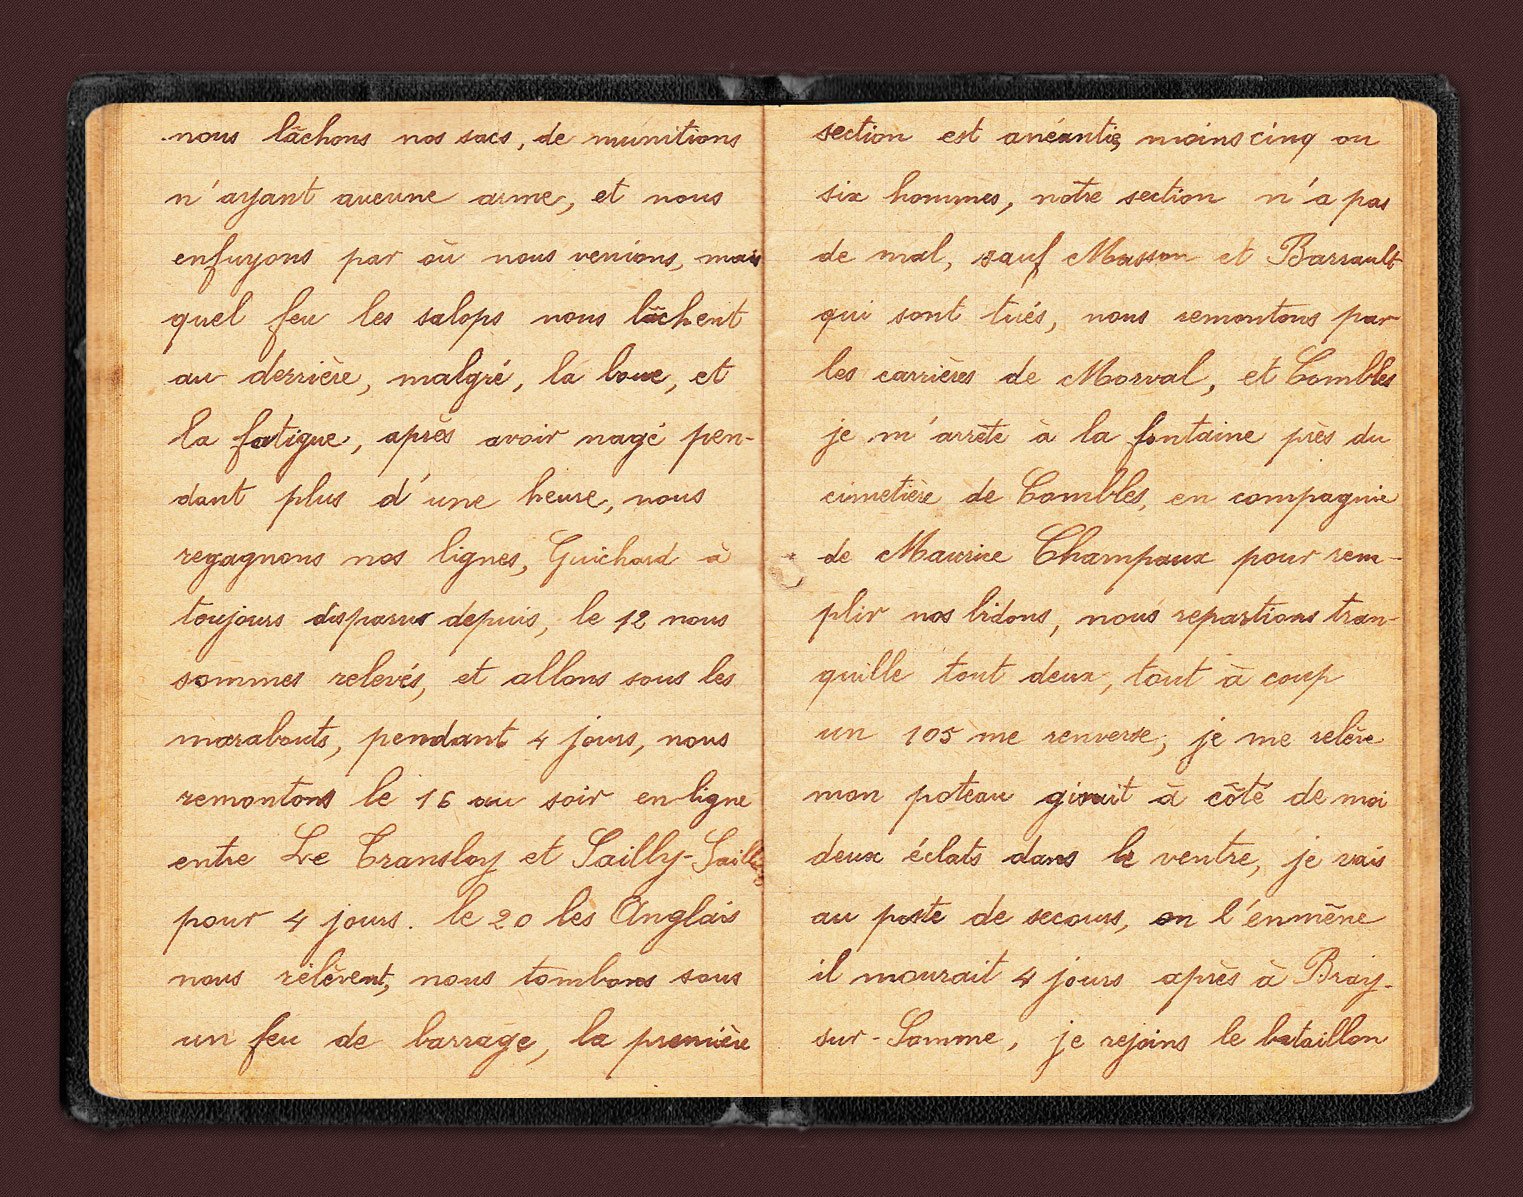 nous lâchons nos sacs, de munitions
n'ayant aucune arme, et nous
enfuyons par où nous venions, mais
quel feu les salops nous lâchent
au derrière, malgré, la boue, et
la fatigue, après avoir nagé pen-
dant plus d'une heure, nous
regagnons nos lignes, Guichard à
toujours disparus depuis, le 12 nous
sommes relevés, et allons sous les
marabouts, pendant 4 jours, nous
remontons le 16 au soir en ligne
entre Le Transloy et Sailly-Sailly
pour 4 jours. le 20 les Anglais
nous relèvent, nous tombons sous
un feu de barrage, la première
section est anéantie, moins cinq ou
six hommes, notre section n'a pas
de mal, sauf Masson et Barrault
qui sont tués, nous remontons par
les carrières de Morval, et Combles
je m'arrête à la fontaine près du
cimetière de Combles, en compagnie
de Maurice Champaux pour rem-
plir nos bidons, nous repartions tran-
quille tout deux, tout à coup
un 105 me renverse, je me relève
mon poteau girait à côté de moi
deux éclats dans le ventre, je vais
au poste de secours, on l'enmène
il mourait 4 jours après à Bray-
sur-Somme, je rejoins le bataillon